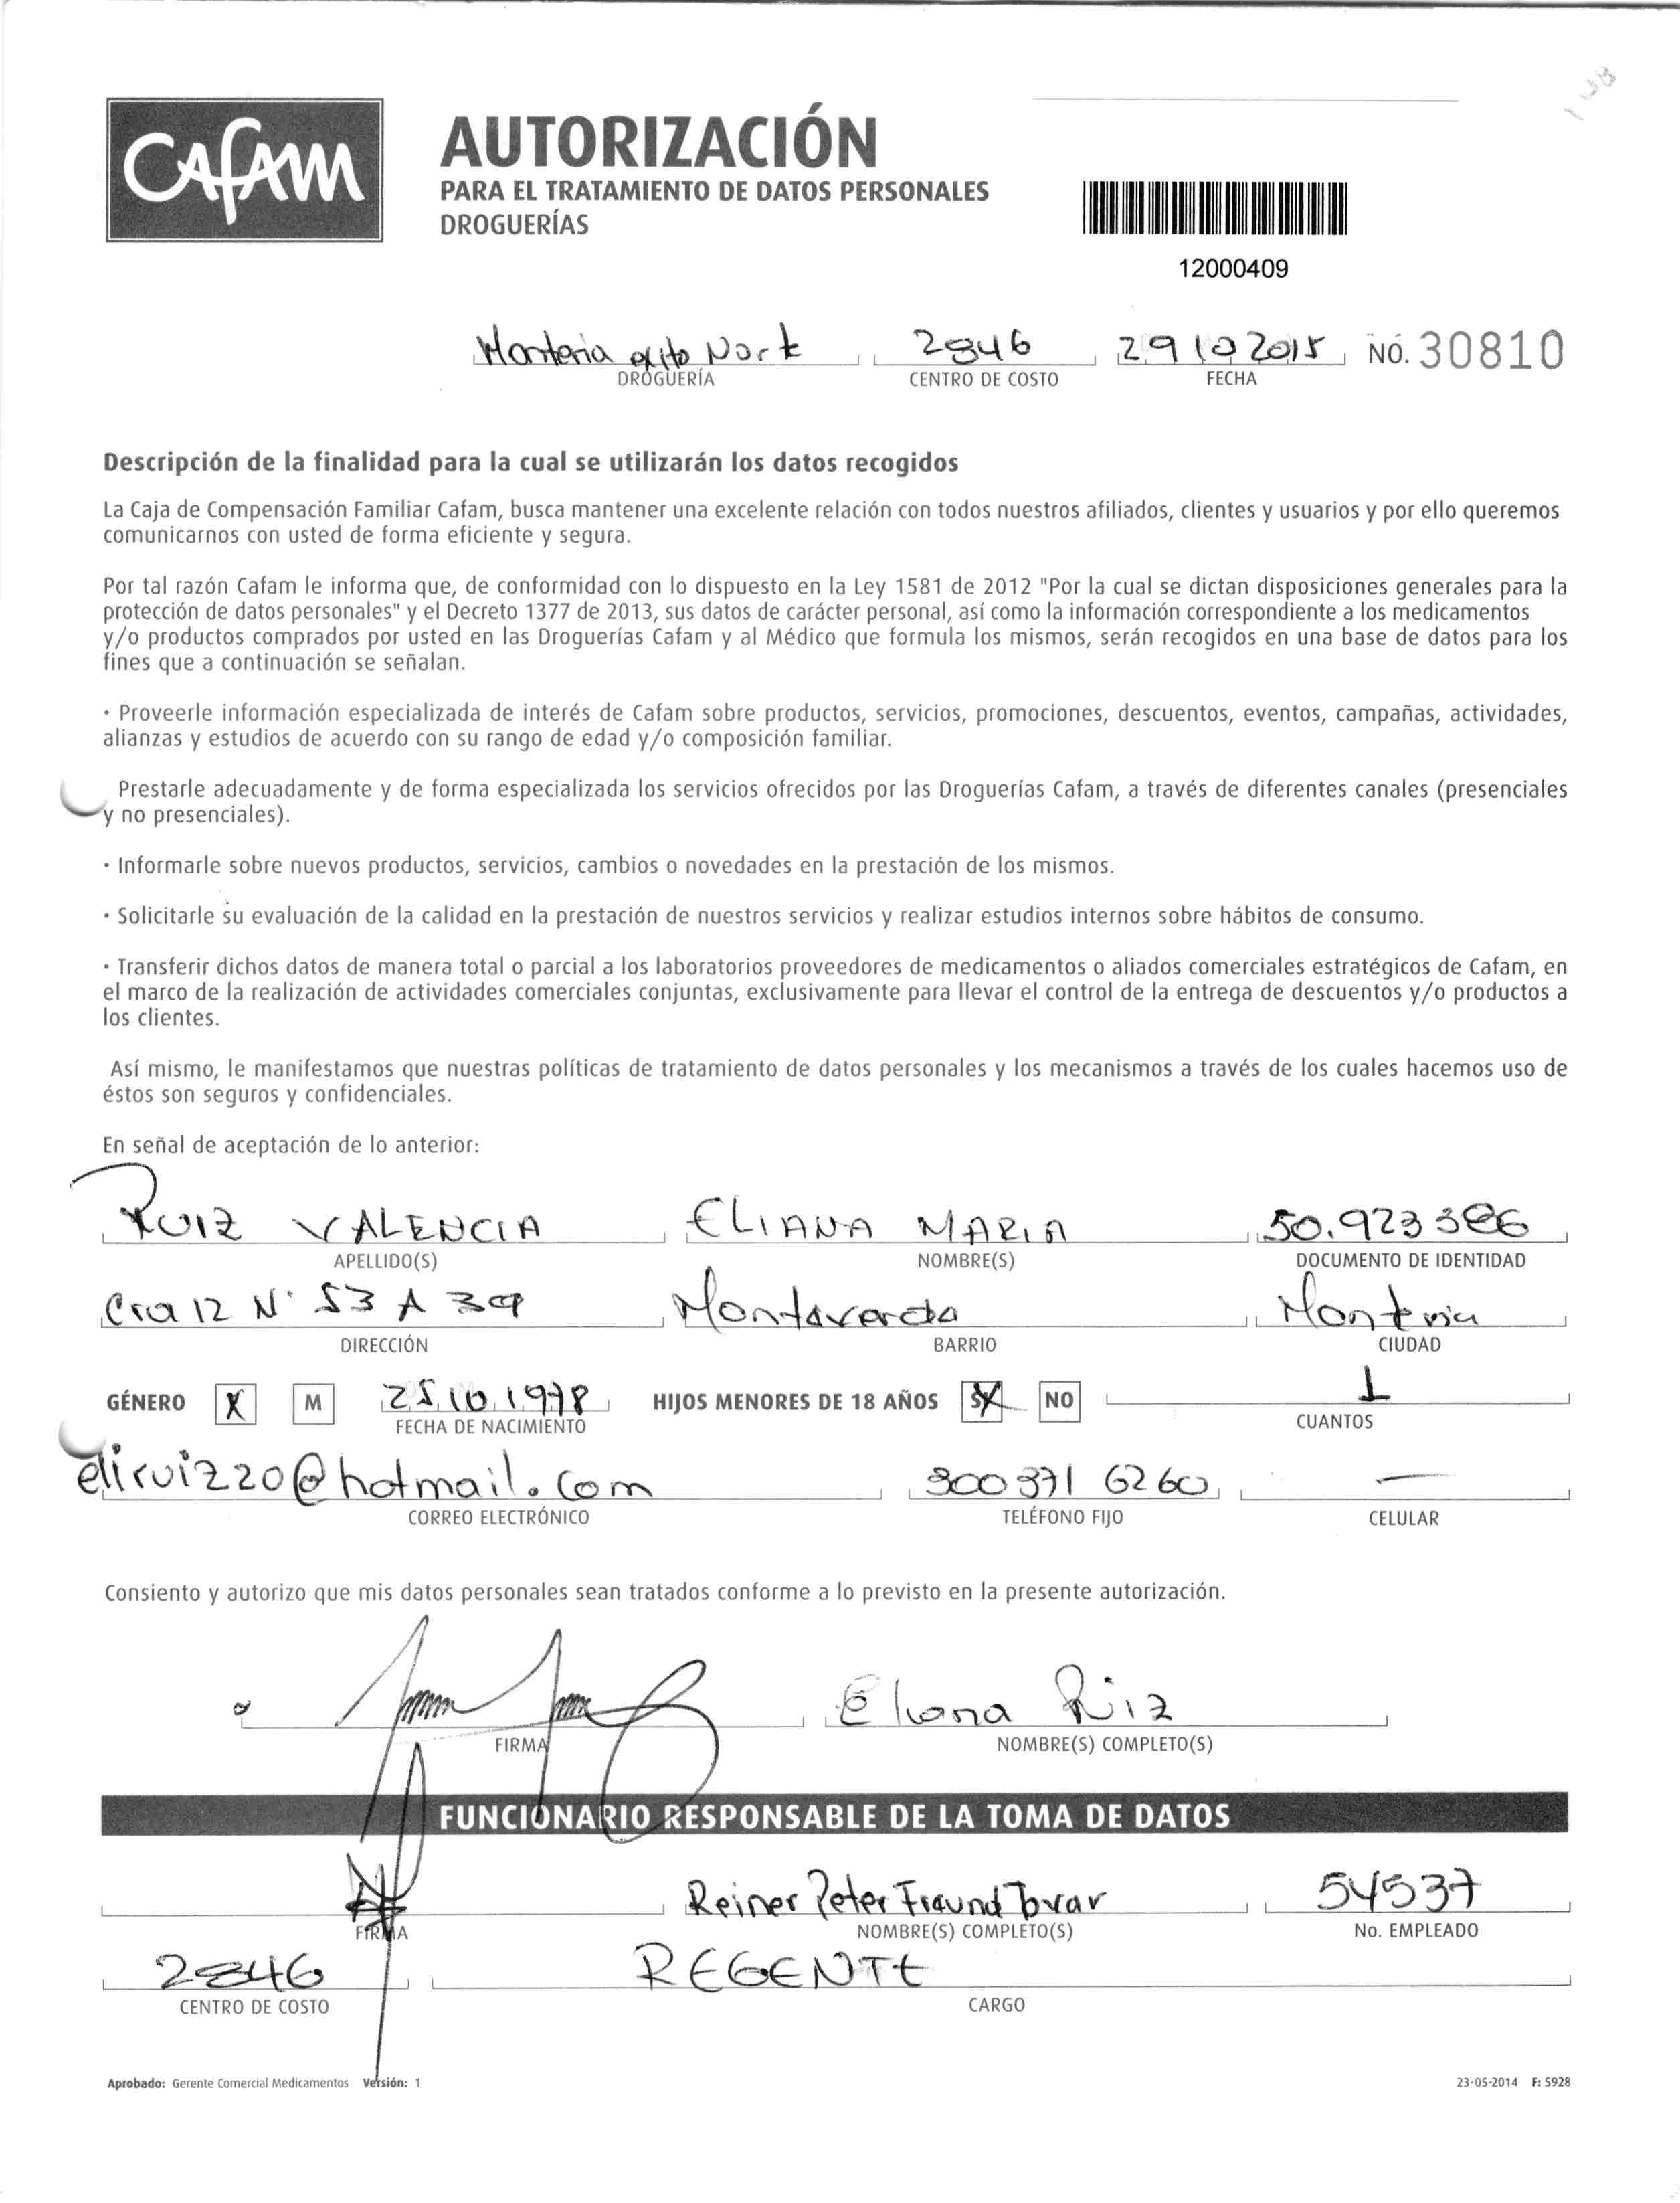 CAFAM
AUTORIZACIÓN
PARA EL TRATAMIENTO DE DATOS PERSONALES
DROGUERÍAS
12000409
Monteria exito Norte 2846 29 10 2015 NO. 30810
DROGUERÍA CENTRO DE COSTO FECHA
Descripción de la finalidad para la cual se utilizarán los datos recogidos
La Caja de Compensación Familiar Cafam, busca mantener una excelente relación con todos nuestros afiliados, clientes y usuarios y por ello queremos
comunicarnos con usted de forma eficiente y segura.
Por tal razón Cafam le informa que, de conformidad con lo dispuesto en la Ley 1581 de 2012 "Por la cual se dictan disposiciones generales para la
protección de datos personales" y el Decreto 1377 de 2013, sus datos de carácter personal, así como la información correspondiente a los medicamentos
y/o productos comprados por usted en las Droguerías Cafam y al Médico que formula los mismos, serán recogidos en una base de datos para los
fines que a continuación se señalan.
· Proveerle información especializada de interés de Cafam sobre productos, servicios, promociones, descuentos, eventos, campañas, actividades,
alianzas y estudios de acuerdo con su rango de edad y/o composición familiar.
Prestarle adecuadamente y de forma especializada los servicios ofrecidos por las Droguerías Cafam, a través de diferentes canales (presenciales
y no presenciales).
· Informarle sobre nuevos productos, servicios, cambios o novedades en la prestación de los mismos.
· Solicitarle su evaluación de la calidad en la prestación de nuestros servicios y realizar estudios internos sobre hábitos de consumo.
· Transferir dichos datos de manera total o parcial a los laboratorios proveedores de medicamentos o aliados comerciales estratégicos de Cafam, en
el marco de la realización de actividades comerciales conjuntas, exclusivamente para llevar el control de la entrega de descuentos y/o productos a
los clientes.
Así mismo, le manifestamos que nuestras políticas de tratamiento de datos personales y los mecanismos a través de los cuales hacemos uso de
éstos son seguros y confidenciales.
En señal de aceptación de lo anterior:
RUIZ VALENCIA ELIANA MARIA 50.923386
APELLIDO(S) NOMBRE(S) DOCUMENTO DE IDENTIDAD
Cra 12 N° 53 A 39 Montaverde Monteria
DIRECCIÓN BARRIO CIUDAD
GÉNERO X M 25 10 1978 HIJOS MENORES DE 18 AÑOS SI X NO 1
FECHA DE NACIMIENTO CUANTOS
eliruiz20@hotmail.com 300 371 6260 —
CORREO ELECTRÓNICO TELÉFONO FIJO CELULAR
Consiento y autorizo que mis datos personales sean tratados conforme a lo previsto en la presente autorización.
Eliana Ruiz
FIRMA NOMBRE(S) COMPLETO(S)
FUNCIONARIO RESPONSABLE DE LA TOMA DE DATOS
Reiner Peter Fraund Tovar 54537
FIRMA NOMBRE(S) COMPLETO(S) No. EMPLEADO
2846 REGENTE
CENTRO DE COSTO CARGO
Aprobado: Gerente Comercial Medicamentos Versión: 1 23-05-2014 F: 5928